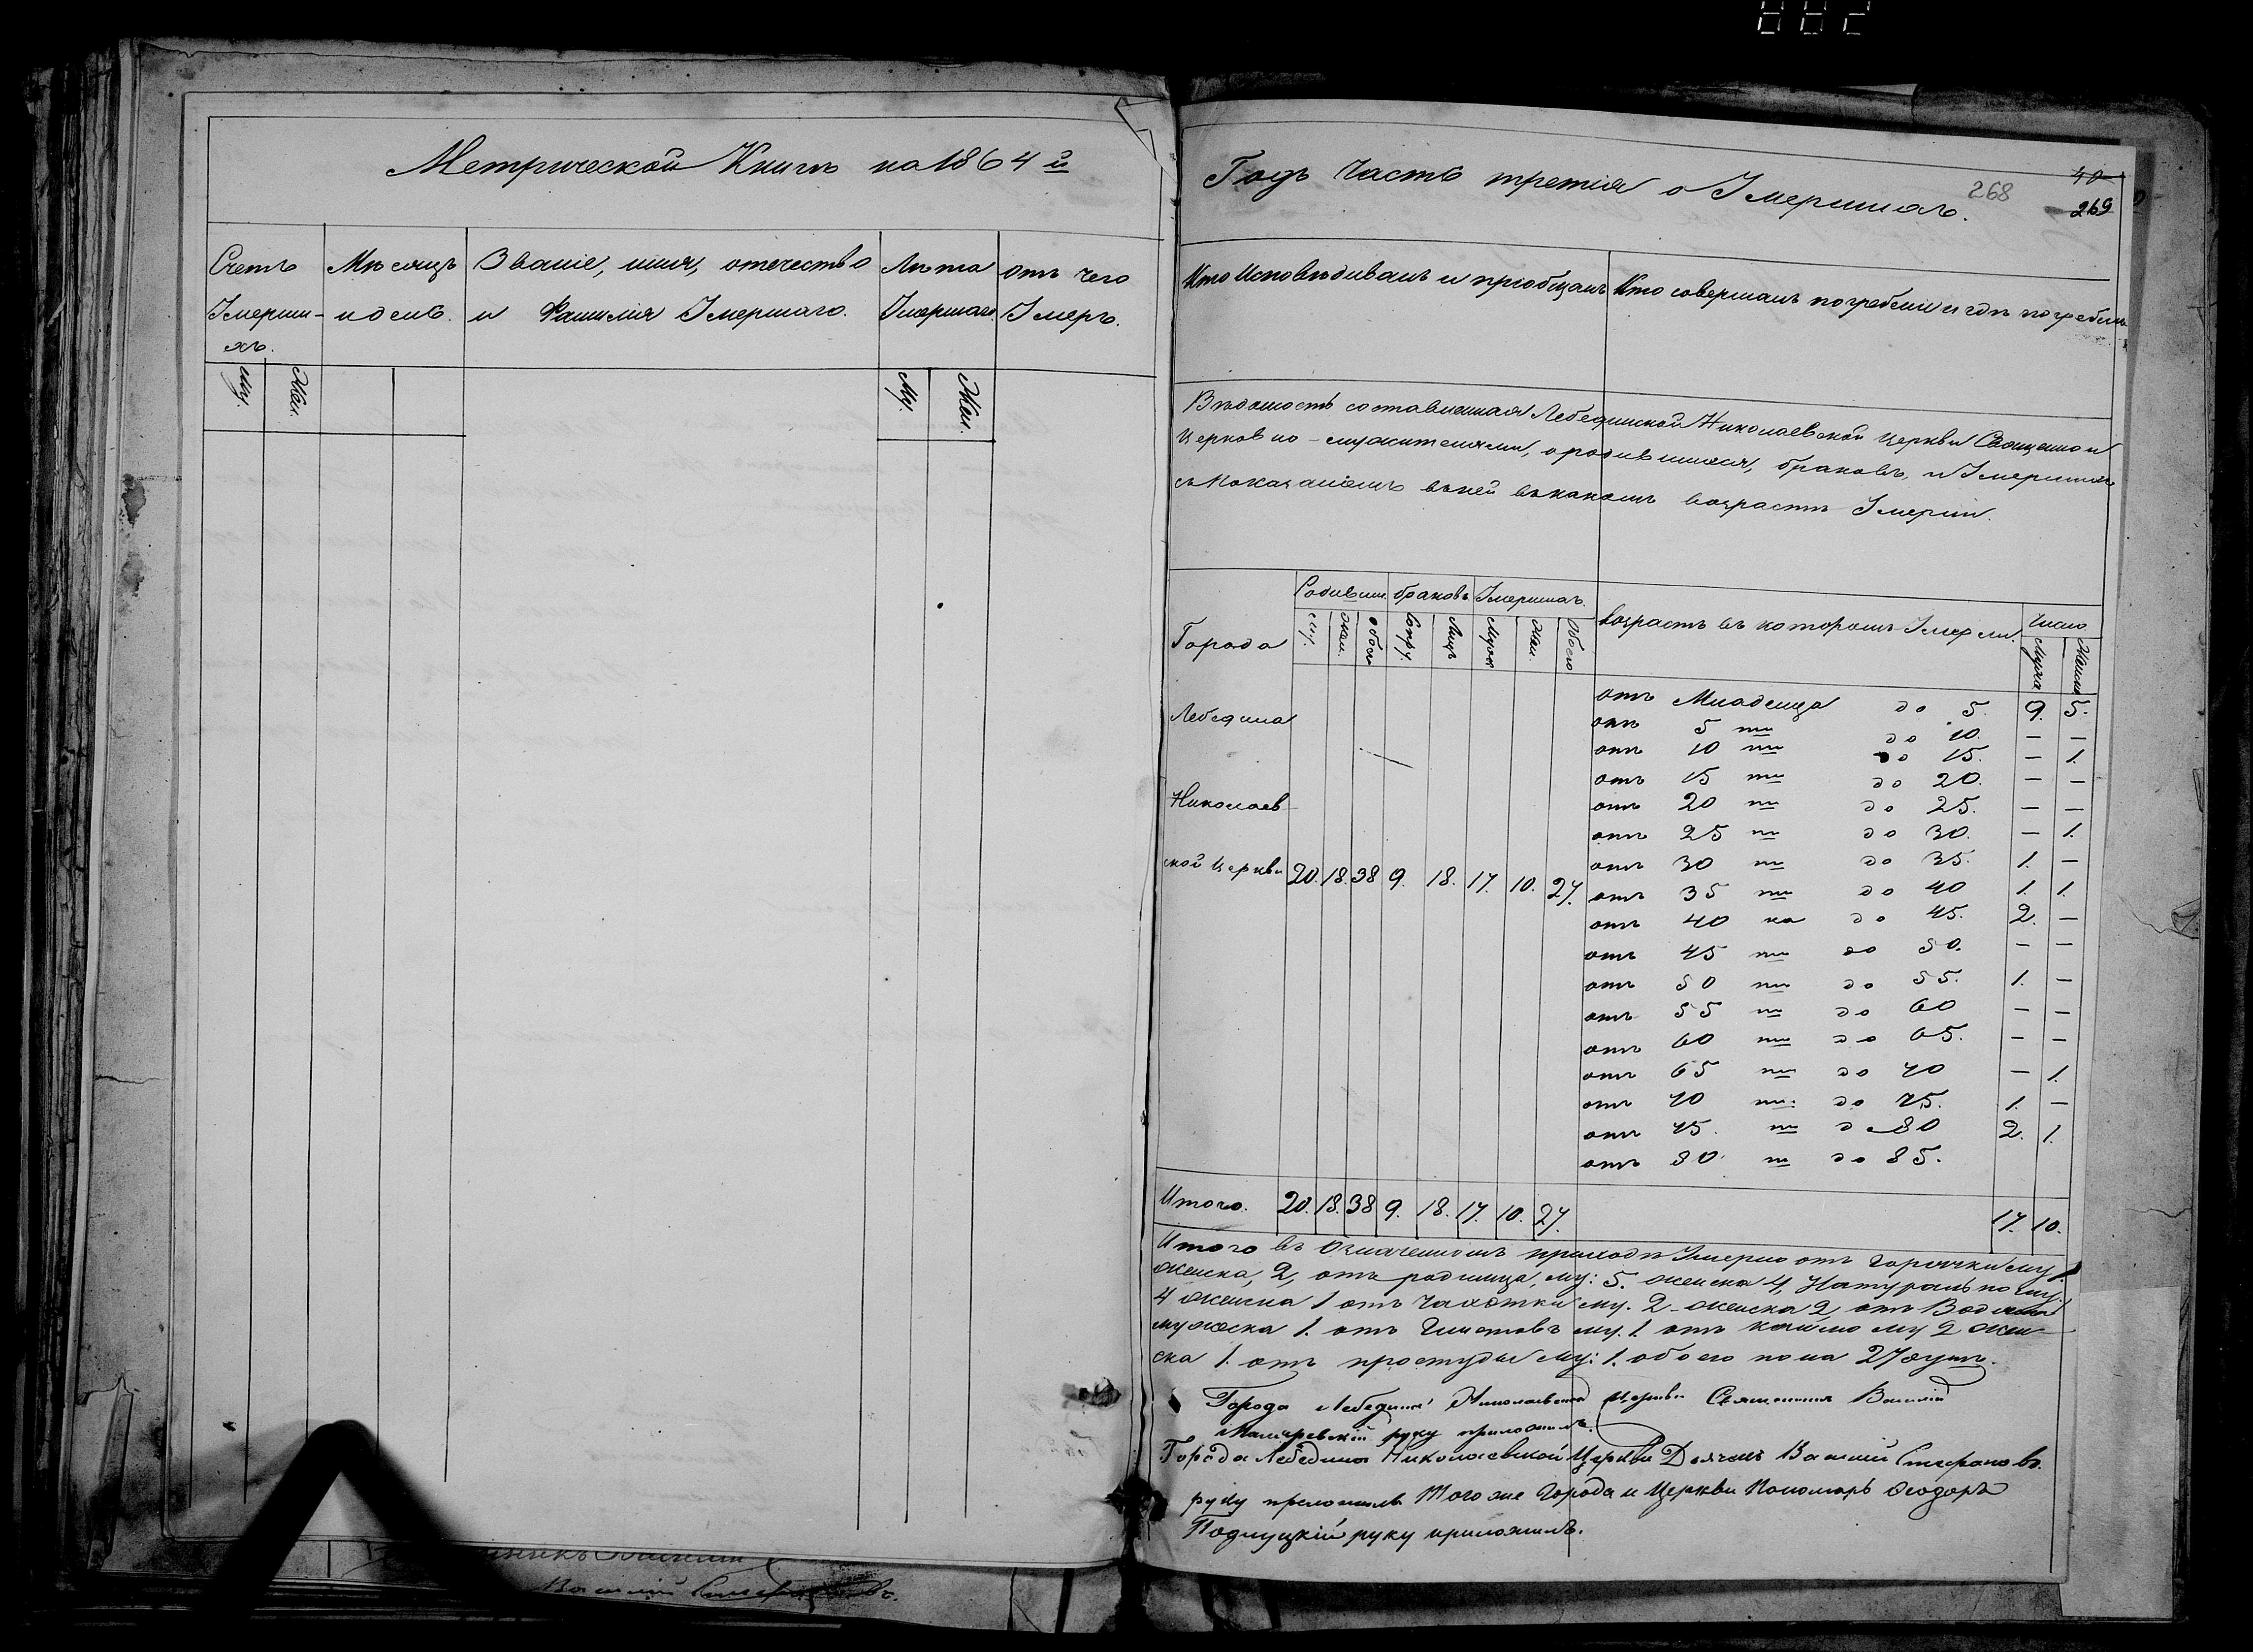 882
Метрической Книги на 1864 й
Счетъ Умерши-хъ.
Мѣсяцъ и день.
Званіе, имя, отечество и Фамилія Умершаго.
Лѣта Умершаго.
отъ чего Умеръ.
му. Жен.
Му. Жен.
Годъ Часть третія о Умершихъ.
268
40
269
Кто Исповѣдивалъ и пріобщалъ
Кто совершалъ погребеніе и гдѣ погребены
Вѣдомость составленная Лебединской Николаевской Церкви Священно и
Церковно-служителями, о родившихся, браковъ, и Умершихъ
съ показаніемъ въ ней въ какомъ возрастѣ Умерли.
Города
Родивши. браковъ Умершихъ.
му. Жен. обое супру. Лицъ Муж Жен. Обоего
возрастъ въ которомъ Умерли.
Число
Мужа Женск
Лебедина
Николаев
ской Церкви 20. 18. 38 9. 18. 17. 10. 27.
отъ Младенца до 5. 9. 5.
отъ 5 ти до 10. — —
отъ 10 ти до 15. — 1.
отъ 15 ти до 20. — —
отъ 20 ти до 25. — —
отъ 25 ти до 30. — 1.
отъ 30 ти до 35. 1. —
отъ 35 ти до 40 1. 1.
отъ 40 ка до 45. 2. —
отъ 45 ти до 50. — —
отъ 50 ти до 55. 1. —
отъ 55 ти до 60 — —
отъ 60 ти до 65. — —
отъ 65 ти до 70 — 1.
отъ 70 ти до 75. 1. —
отъ 75. ти до 80 2. 1.
отъ 80 ти до 85.
Итого. 20. 18. 38 9. 18. 17. 10. 27. 17. 10.
Итого въ Означенномъ приходѣ Умерло отъ горячки му 1.
женска, 2, отъ родимца, му: 5. женска 4, Натурально му.
4 женска 1 отъ Чахотки му. 2 - женска 2 отъ Водяной
мужеска 1. отъ Глистовъ му. 1. отъ кашлю му 2 жен-
ска 1. отъ простуды му: 1. обоего пола 27 душъ.
Города Лебедина Николаевской Церкви Священникъ Василій
руку приложилъ.
Города Лебедина Николаевской Церкви Дьячекъ Василий Стефановъ.
руку преложилъ Того же Города и Церкви Пономарь Феодоръ
Подлуцкій руку приложилъ.
Василій